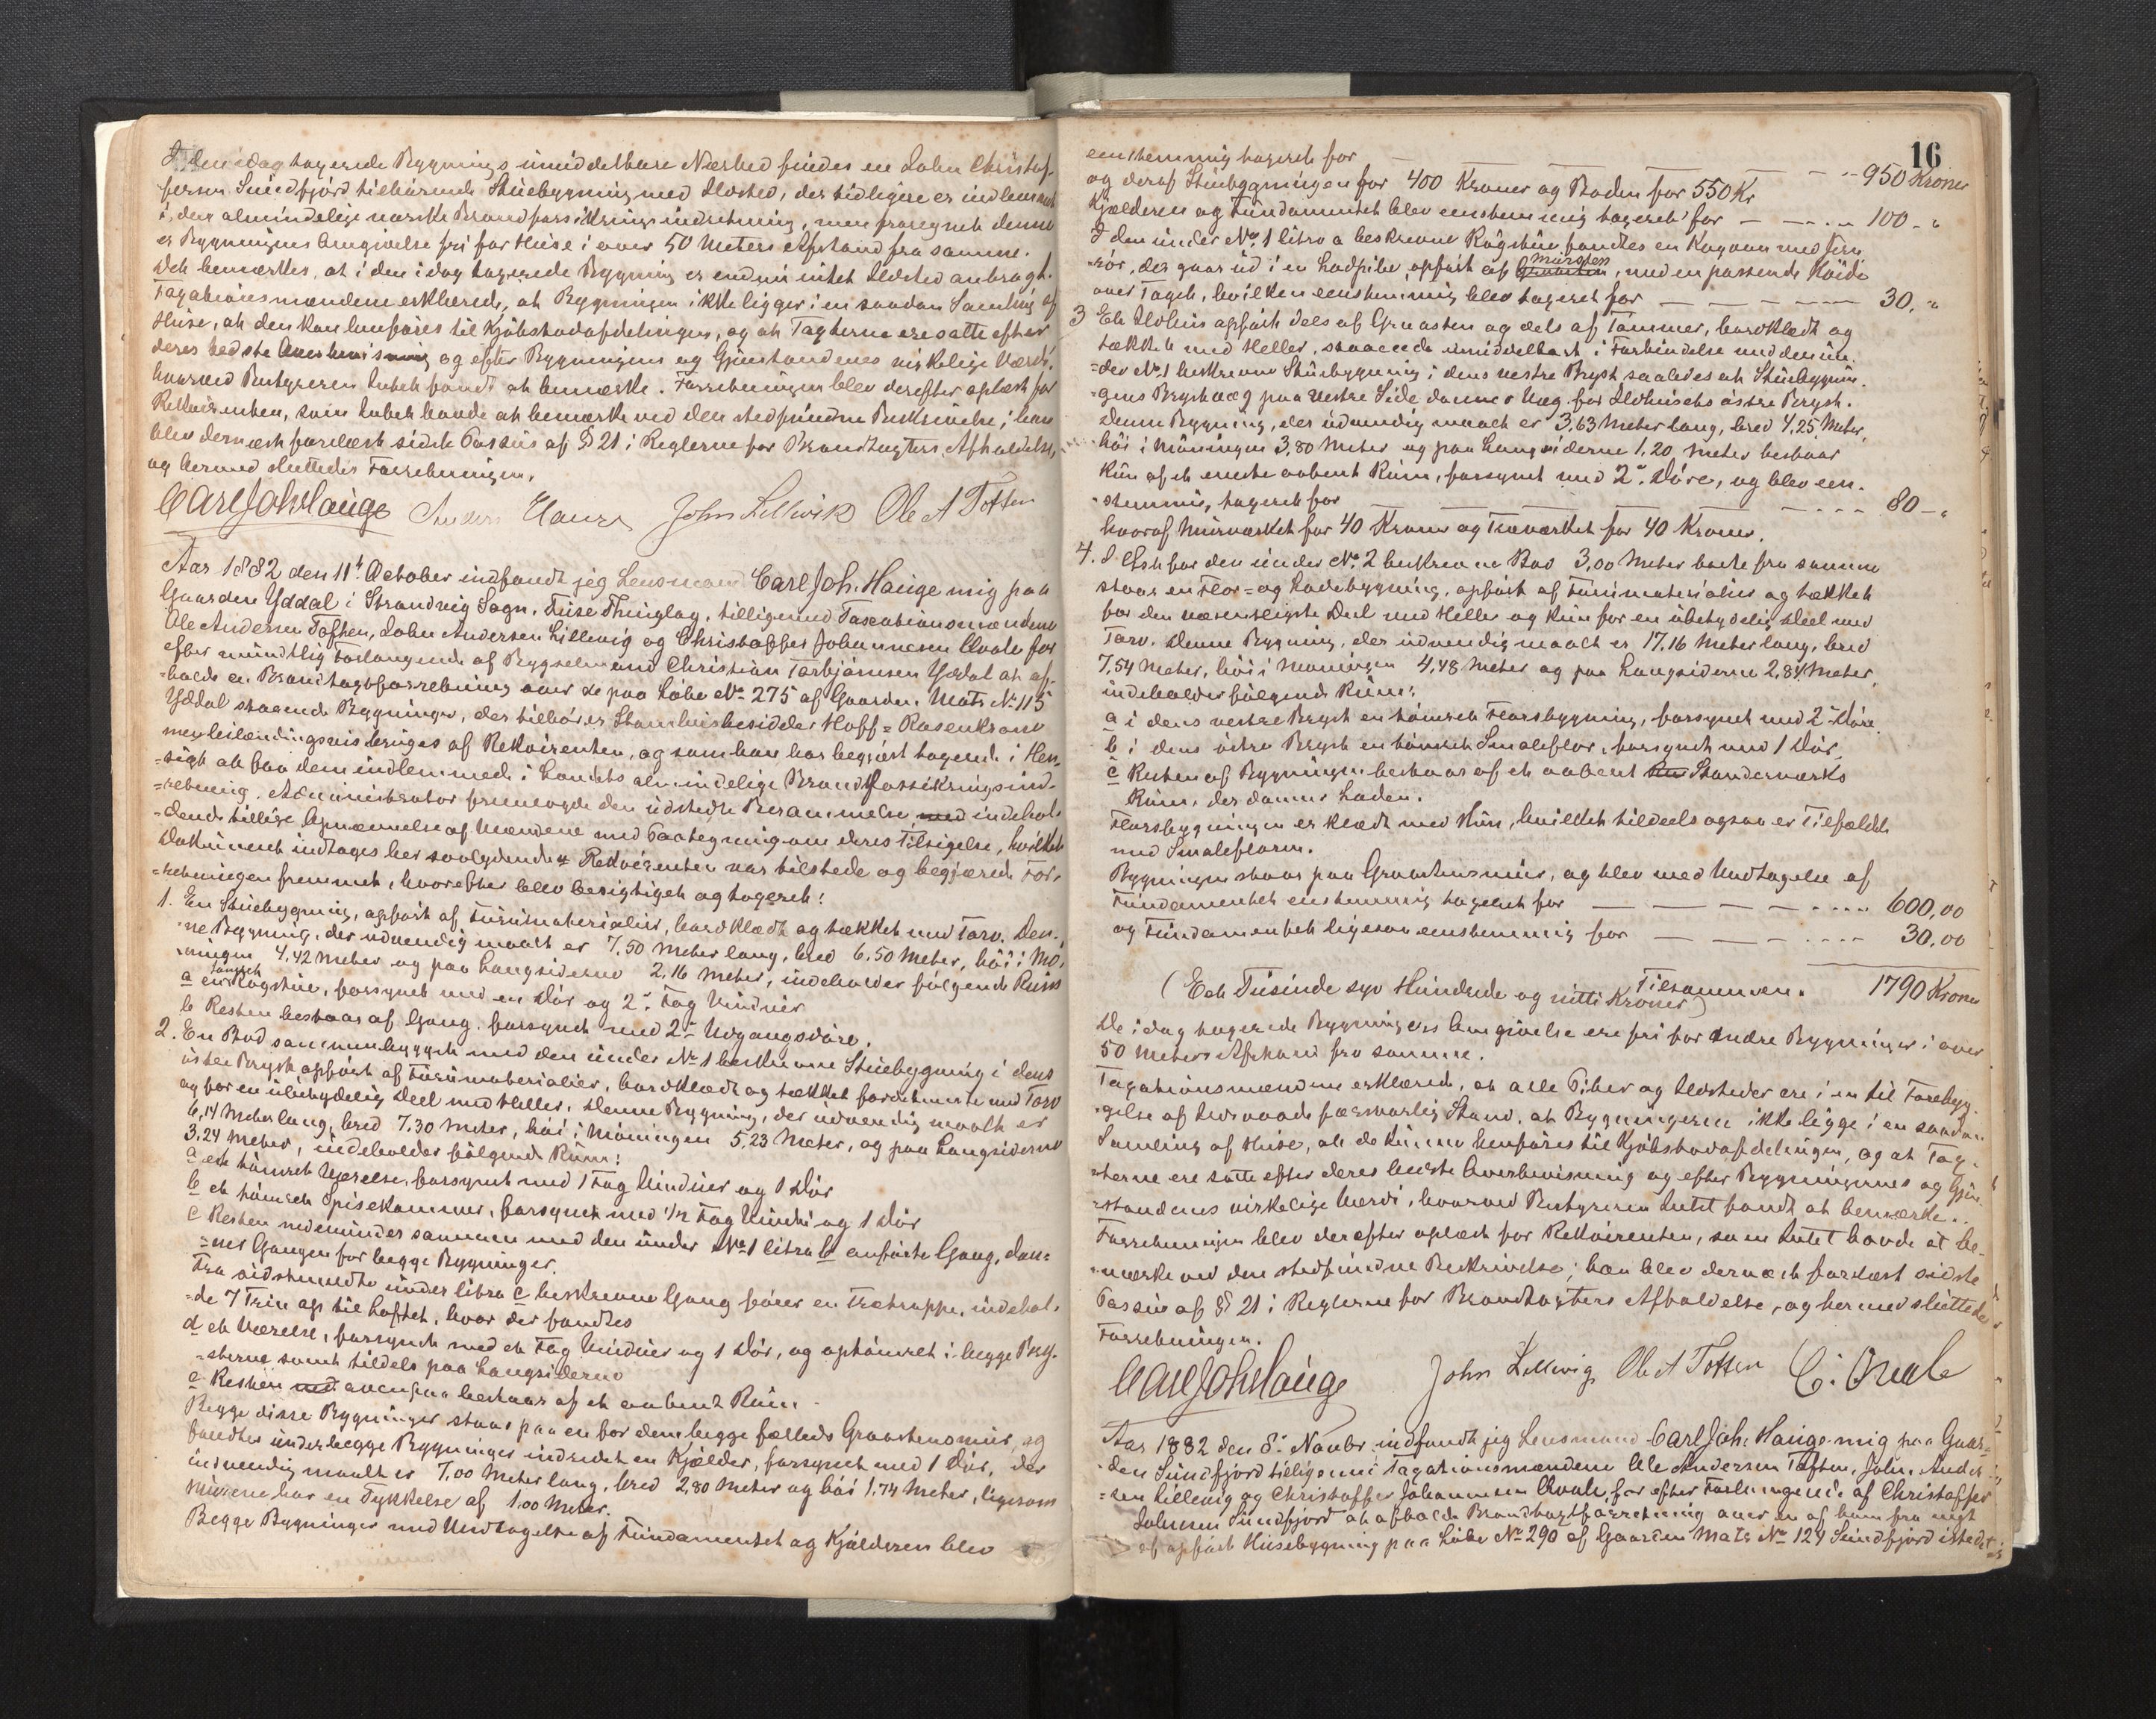 I den idag taxerede Bygnings umiddelbare Nærhed findes en John Christof-
fersen Sundfjord tilhørende Stuebygning med Ildsted, der tidligere er indlemmet
i, den almindelige norske Brandforsikringsindretning, men fraregnet denne
er Bygningens Omgivelse fri for Huse i over 50 Meters Afstand fra samme.
Det bemærkes, at i den idag taxerede Bygning er endnu intet Ildsted anbragt.
Taxationsmændene erklærede, at Bygningen ikke ligger i en saadan Samling af
Huse, at den kan henføres til Kjøbstadafdelingen, og at Taxterne ere satte efter
deres bedste Overbevisning og efter Bygningens og Gjenstandenes virkelige Værdi,
hvorved Bestyreren Intet fandt at bemærke. Forretningen blev derefter oplæst for
Rekvirenten, som Intet havde at bemærke ved den stedfundne Beskrivelse; han
blev dernæst forelæst sidste Passus af § 21 i Reglerne for Brandtaxters Afholdelse,
og hermed sluttedes Forretningen.
Carl Joh Hauge Anders Hauge John Lillevik Ole A Toften
Aar 1882 den 11te October indfandt jeg Lensmand Carl Joh. Hauge mig paa
Gaarden Yddal i Strandvig Sogn, Fuse Thinglag, tilligemed Taxationsmændene
Ole Andersen Toften, John Andersen Lillevig og Christoffer Johannesen Qvale for
efter mundtlig Forlangende af Bygselmand Christian Torbjørnsen Yddal at af-
=holde en Brandtaxtforretning over de paa Løbe No 275 af Gaarden Matr. No 115
Yddal staaende Bygninger, der tilhører Stamhusbesidder Hoff = Rosenkrone
men leilændingsvis bruges af Rekvirenten, og som han har begjært taxerede i Hen-
=sigt at faa dem indlemmede i Landets almindelige Brandforsikringsind-
=retning. Administrator fremlagde den udstedte Berammelse med indehol-
=dende tillige Opnævnelse af Mændene med Paategning om deres Tilsigelse, hvilket
Dokument indtages her saalydende Rekvirenten var tilstede og begjærede For-
=retningen fremmet, hvorefter blev besigtiget og taxeret:
1. En Stuebygning, opført af Furumaterialier, bordklædt og tækket med Torv. Den-
ne Bygning, der udvendig maalt er 7,50 Meter lang, bred 6,50 Meter, høi i Mø-
ningen 4,42 Meter og paa Langsiderne 2,16 Meter, indeholder følgende Rum
a en tømret Røgstue, forsynet med en Dør og 2de Fag Vinduer
b Resten bestaar af Gang, forsynet med 2de Udgangsdøre.
2. En Bod sammenbygget med den under No 1 beskrevne Stuebygning i dens
østre Bryst, opført af Furumaterialier, bordklædt og tækket fordetmeste med Torv
og for en ubetydelig Deel med Heller. Denne Bygning, der udvendig maalt er
6,14 Meter lang, bred 7,30 Meter, høi i Møningen 5,23 Meter, og paa Langsiderne
3,24 Meter, indeholder følgende Rum:
a et tømret Værelse, forsynet med 1 Fag Vinduer og 1 Dør
b et tømret Spisekammer, forsynet med 1/2 Fag Vindu og 1 Dør
c Resten nedenunder sammen med den under No 1 litra b anførte Gang, dan-
=ner Gangen for begge Bygninger.
Fra sidstnævnte under litra c beskrevne Gang fører en Trætrappe, indehol-
de 7 Trin op til Loftet, hvor der fandtes
d et Værelse, forsynet med et Fag Vinduer og 1 Dør, og optømret i begge Bry-
=sterne samt tildels paa Langsiderne
e Resten ovenpaa bestaar af et aabent Rum.
Begge disse Bygninger staar paa en for dem begge fælleds Graastensmur, og
fandtes under begge Bygninger indredet en Kjelder, forsynet med 1 Dør, der
indvendig maalt er 7,00 Meter lang, bred 2,80 Meter og høi 1,74 Meter, ligesom
Murene har en Tykkelse af 1,00 Meter.
Begge Bygninger med Undtagelse af Fundamentet og Kjelderen blev
16
eenstemmig taxeret for — — — 950 Kroner
og deraf Stuebygningen for 400 Kroner og Boden for 550 Kr
Kjælderen og Fundamentet blev eenstemmig taxeret for — — 100 - "
I den under No 1 litra a beskrevne Røgstue fandtes en Kogeovn med Jern-
=rør, der gaar ud i en Ladpibe, opført af Graasten mursten, med en passende Høide
over Taget, hvilken eenstemmig blev taxeret for — — — 30, "
3 Et Ildhus opført dels af Graasten og dels af Tømmer, bordklædt og
tækket med Heller, staaende umiddelbart i Forbindelse med den un-
=der No 1 beskrevne Stuebygning i dens vestre Bryst saaledes at Stuebygnin-
=gens Brystvæg paa vestre Side danner Væg for Ildhusets østre Bryst.
Denne Bygning, der udvendig maalt er 3,63 Meter lang, bred 4,25 Meter,
høi i Møningen 3,80 Meter og paa Langsiderne 1,20 Meter bestaar
kun af et eneste aabent Rum, forsynet med 2de Døre, og blev een-
=stemmig taxeret for — — — 80 - "
hvoraf Murværket for 40 Kroner og Træværket for 40 Kroner.
4. I Øst for den under No 2 beskrevne Bod 3,00 Meter borte fra samme
staar en Flor= og Ladebygning, opført af Furumaterialier og tækket
for den væsentligste Deel med Heller og kun for en ubetydelig Deel med
Torv. Denne Bygning, der udvendig maalt er 17,16 Meter lang, bred
7,54 Meter, høi i Møningen 4,48 Meter og paa Langsiderne 2,84 Meter,
indeholder følgende Rum:
a i dens vestre Bryst en tømret Florsbygning, forsynet med 2de Døre
b i dens østre Bryst en tømret Smaleflor, forsynet med 1 Dør
c Resten af Bygningen bestaar af et aabent Standerværks
Rum, der danner Laden.
Florsbygningen er klædt med Hun, hvilket tildeels ogsaa er Tilfældet
med Smalefloren.
Bygningen staar paa Graastensmur, og blev med Undtagelse af
Fundamentet eenstemmig taxeret for — — — 600,00
og Fundamentet ligesaa eenstemmig for — — — 30,00
Tilsammen. 1790 Kroner
(Eet Tusinde syv Hundrede og nitti Kroner)
De idag taxerede Bygningers Omgivelse ere fri for andre Bygninger i over
50 Meters Afstand fra samme.
Taxationsmændene erklærede, at alle Piber og Ildsteder ere i en til Forebyg-
=gelse af Ildsvaade forsvarlig Stand, at Bygningerne ikke ligge i en saadan
Samling af Huse, at de kunne henføres til Kjøbstadafdelingen, og at Tax-
=terne ere satte efter deres bedste Overbevisning og efter Bygningernes og Gjen-
=standenes virkelige Værdi, hvorved Bestyreren Intet fandt at bemærke.
Forretningen blev derefter oplæst for Rekvirenten, som Intet havde at be-
=mærke ved den stedfundne Beskrivelse; han blev dernæst forelæst sidste
Passus af § 21 i Reglerne for Brandtaxters Afholdelse, og hermed sluttedes
Forretningen.
Carl Joh Hauge John Lillevig Ole A Toften C. Qvale
Aar 1882 den 8de Novbr. indfandt jeg Lensmand Carl Joh. Hauge mig paa Gaar-
=den Sundfjord tilligemed Taxationsmændene Ole Andersen Toften, John Ander-
=sen Lillevig og Christoffer Johannesen Qvale, for efter Forlangende af Christoffer
Johnsen Sundfjord at afholde Brandtaxtforretning over en af ham fra nyt
af opført Husebygning paa Løbe No 290 af Gaarden Matr. No 124 Sundfjord istedet